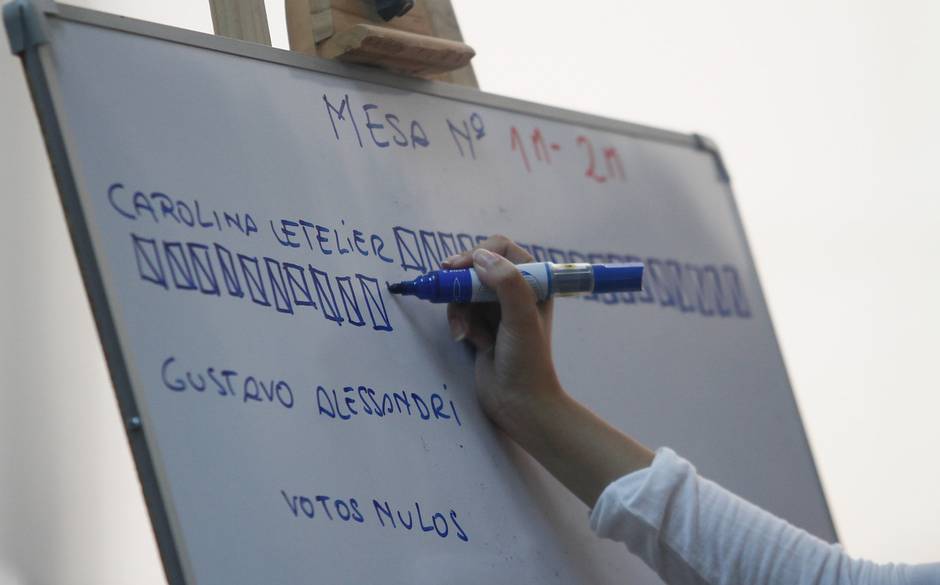 MESA Nº 1M-2M
CAROLINA LETELIER
GUSTAVO ALESSANDRI
VOTOS NULOS